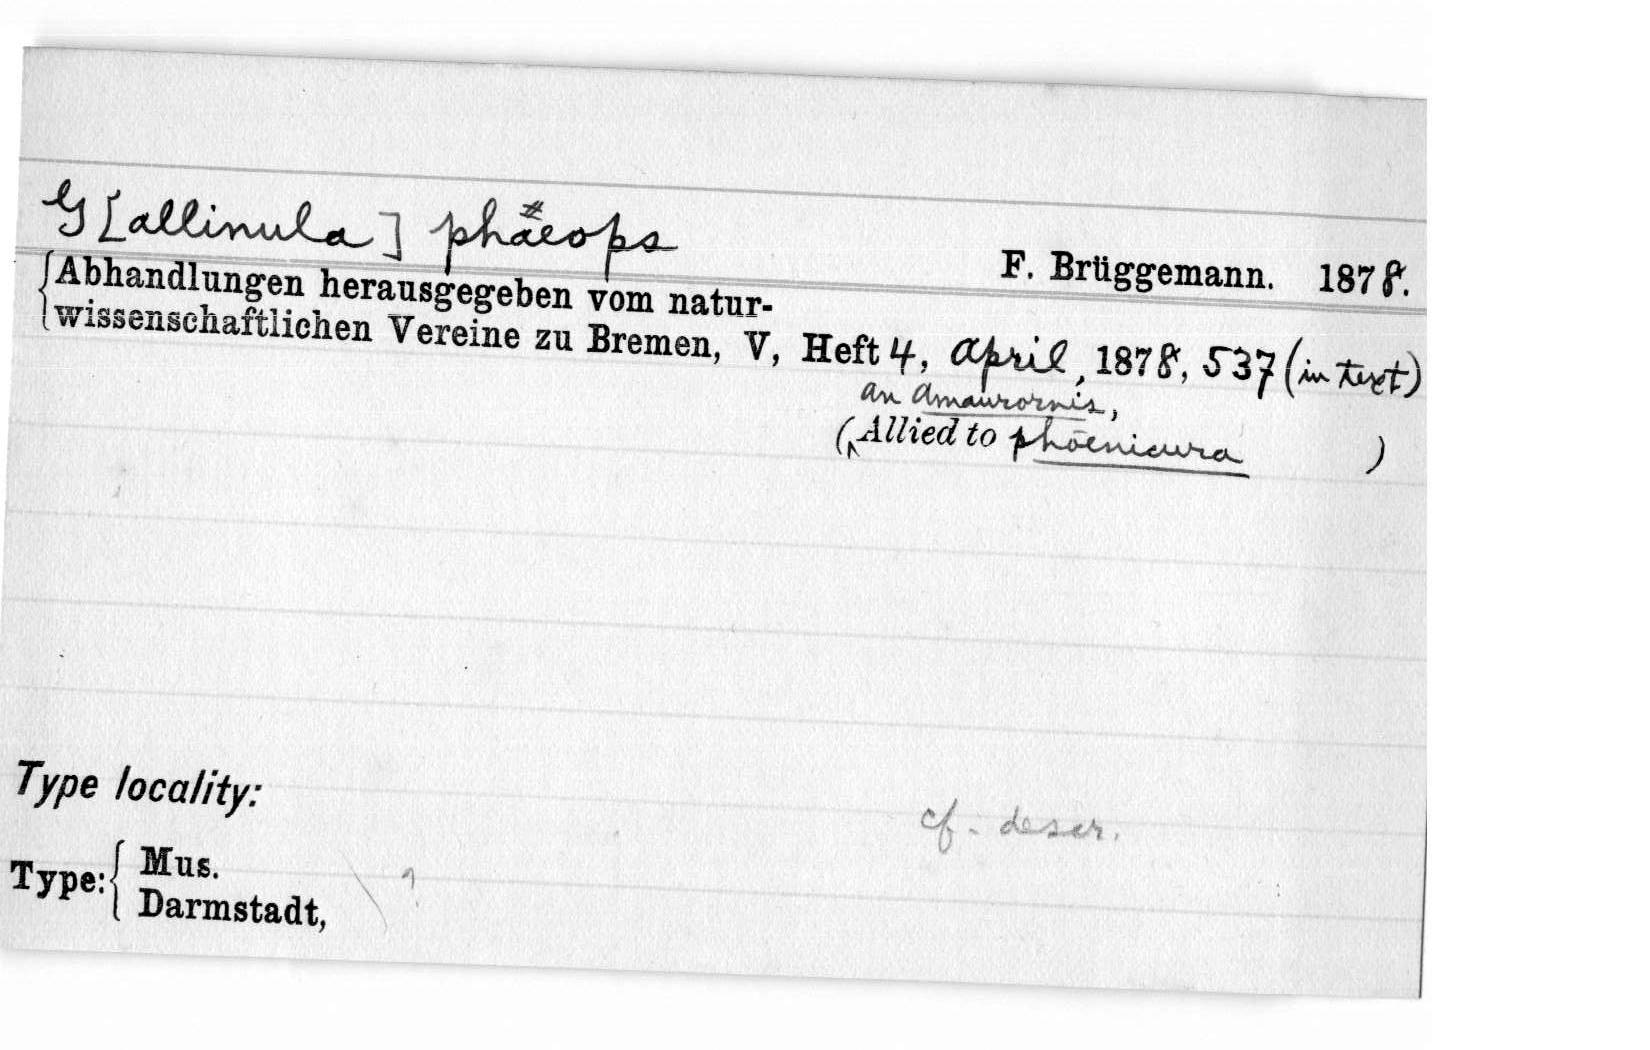 G[allinula] phaeops
#
F. Brüggemann. 1878.
Abhandlungen herausgegeben vom natur-
wissenschaftlichen Vereine zu Bremen, V, Heft 4, April, 1878, 537 (in text)
an Amaurornis,
(Allied to phoenicura )
Type locality:
cf. descr.
Type: Mus. ?
Darmstadt,